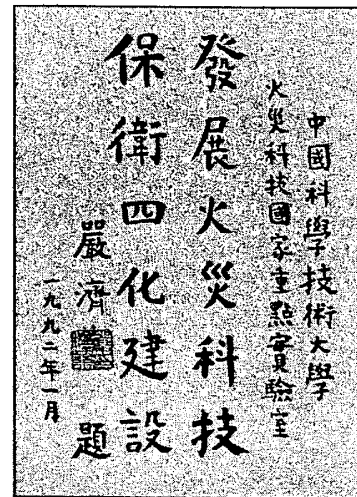 中國科學技術大學
火災科技國家重點實驗室
發展火災科技
保衛四化建設
嚴濟 題
一九九二年一月